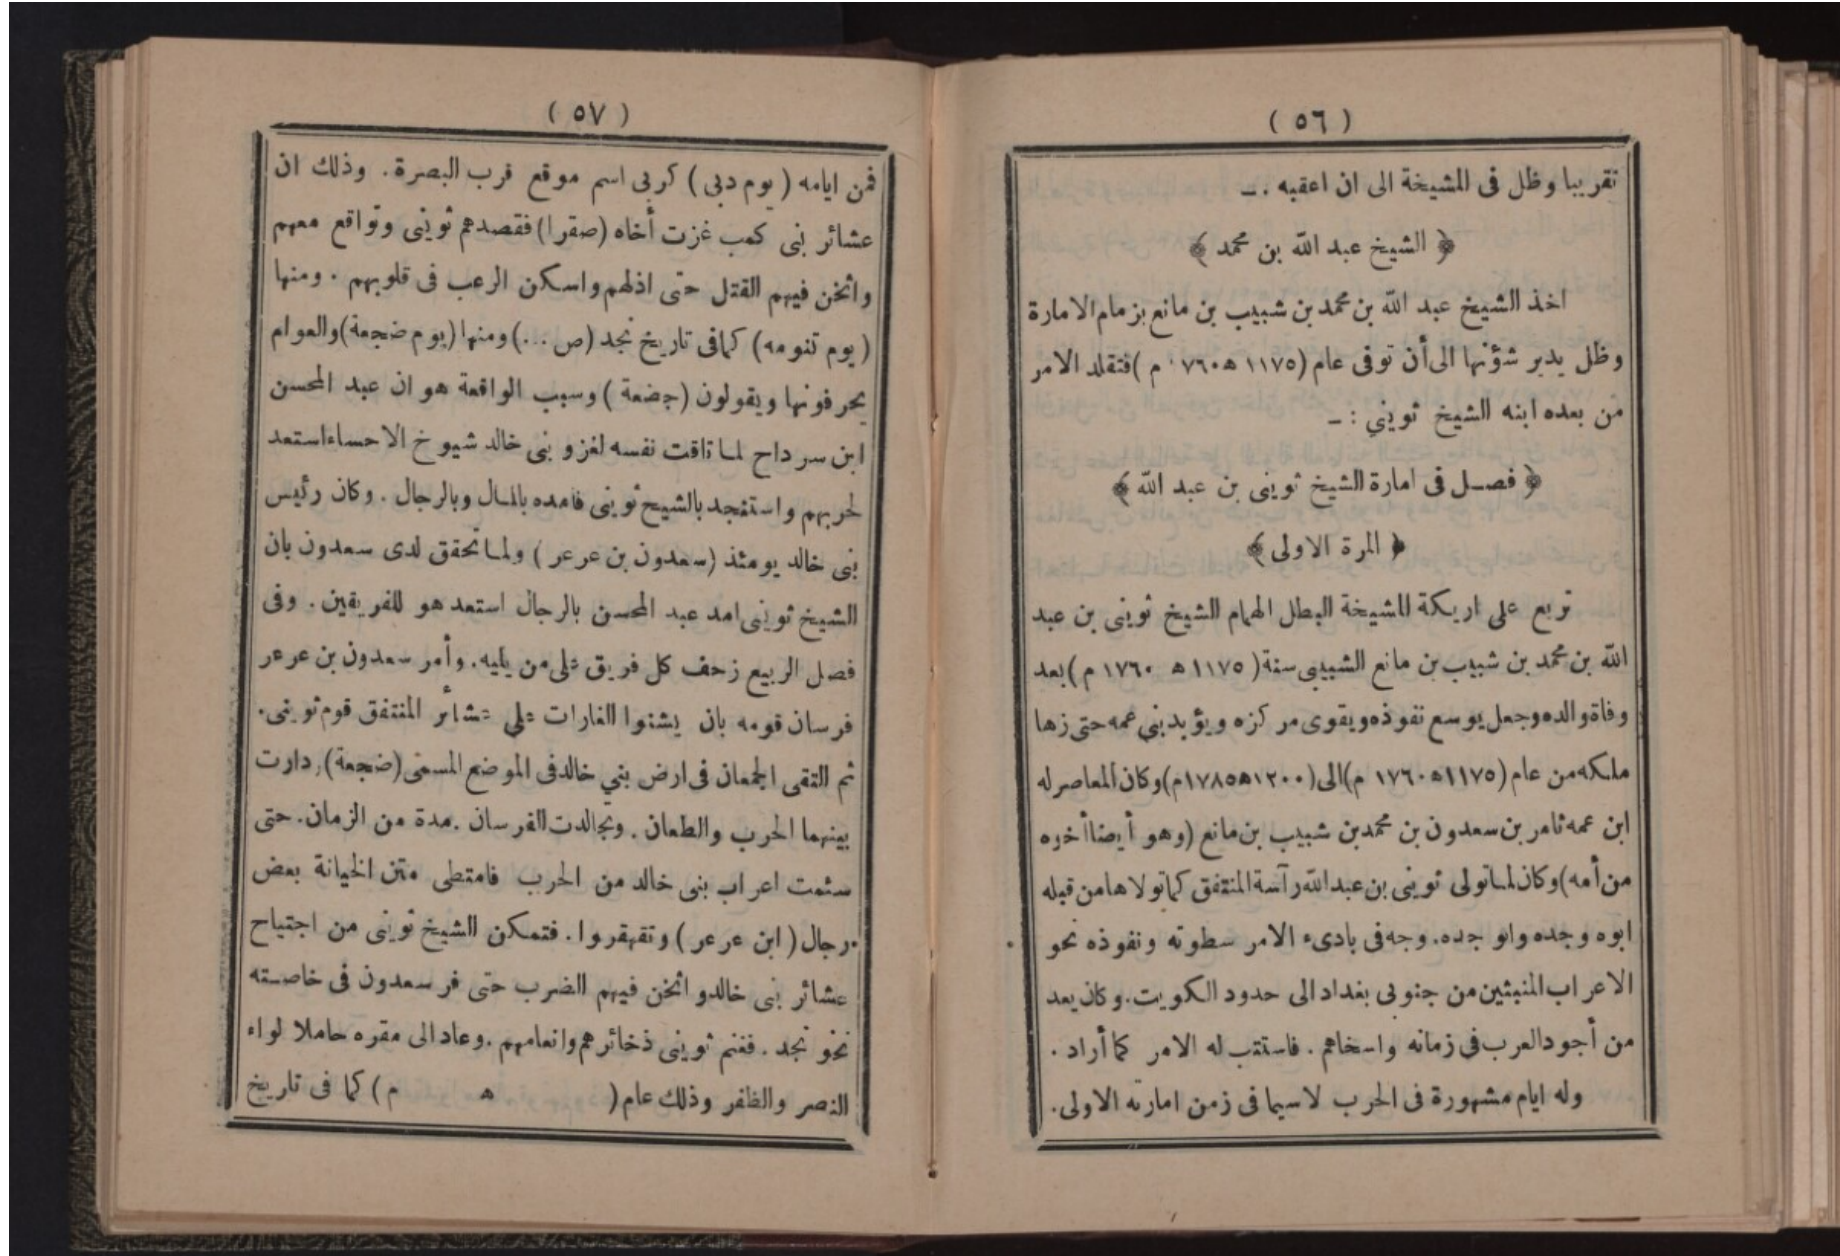 ( ٥٦ )
تقريبا وظل فى المشيخة الى ان اعقبه . ــ
﴿ الشيخ عبد الله بن محمد ﴾
اخذ الشيخ عبد الله بن محمد بن شبيب بن مانع بزمام الامارة
وظل يدير شؤنها الى أن توفى عام (١١٧٥ ه ٧٦٠ م )فتقلد الامر
من بعده ابنه الشيخ ثويني : ــ
﴿ فصل فى امارة الشيخ ثوينى بن عبد الله ﴾
﴿ المرة الاولى ﴾
تربع على اريكة المشيخة البطل الهمام الشيخ ثوينى بن عبد
الله بن محمد بن شبيب بن مانع الشبيبى سنة ( ١١٧٥ ه ١٧٦٠ م ) بعد
وفاة والده وجعل يوسع نفوذه ويقوى مركزه ويؤيد بني عمه حتى زها
ملكه من عام (١١٧٥ه ١٧٦٠ م)الى(١٢٠٠ه١٧٨٥م) وكان المعاصر له
ابن عمه ثامر بن سعدون بن محمد بن شبيب بن مانع (وهو أيضا أخوه
من أمه) وكان لما تولى ثوينى بن عبد الله رآسة المنتفق كما تولاها من قبله
ابوه وجده وابو جده. وجه فى بادىء الامر سطوته ونفوذه نحو
الاعراب المنبثين من جنوبى بغداد الى حدود الكويت. وكان يعد
من أجود العرب فى زمانه واسخاهم . فاستتب له الامر كما أراد .
وله ايام مشهورة فى الحرب لاسيما فى زمن امارته الاولى.
( ٥٧ )
فمن ايامه ( يوم دبى ) كربى اسم موقع قرب البصرة . وذلك ان
عشائر بنى كعب غزت أخاه (صقرا) فقصدهم ثوينى وتواقع معهم
واثخن فيهم القتل حتى اذلهم واسكن الرعب فى قلوبهم . ومنها
( يوم تنومه ) كما فى تاريخ نجد (ص ...) ومنها (يوم ضجعة) والعوام
يحرفونها ويقولون (جضعة ) وسبب الواقعة هو ان عبد المحسن
ابن سرداح لما تاقت نفسه لغزو بنى خالد شيوخ الاحساء استعد
لحربهم واستنجد بالشيخ ثوينى فامده بالمال وبالرجال . وكان رئيس
بنى خالد يومئذ (سعدون بن عرعر ) ولما تحقق لدى سعدون بان
الشيخ ثوينى امد عبد المحسن بالرجال استعد هو للفريقين . وفى
فصل الربيع زحف كل فريق على من يليه. وأمر سعدون بن عرعر
فرسان قومه بان يشنوا الغارات على عشائر المنتفق قوم ثوينى.
ثم التقى الجمعان فى ارض بني خالد فى الموضع المسمى (ضجعة) ودارت
بينهما الحرب والطعان . وتجالدت الفرسان . مدة من الزمان. حتى
سئمت اعراب بنى خالد من الحرب فامتطى متن الخيانة بعض
رجال ( ابن عرعر ) وتقهقروا . فتمكن الشيخ ثوينى من اجتياح
عشائر بنى خالد واثخن فيهم الضرب حتى فر سعدون فى خاصته
نحو نجد . فغنم ثوينى ذخائرهم وانعامهم . وعاد الى مقره حاملا لواء
النصر والظفر وذلك عام ( ه م ) كما فى تاريخ